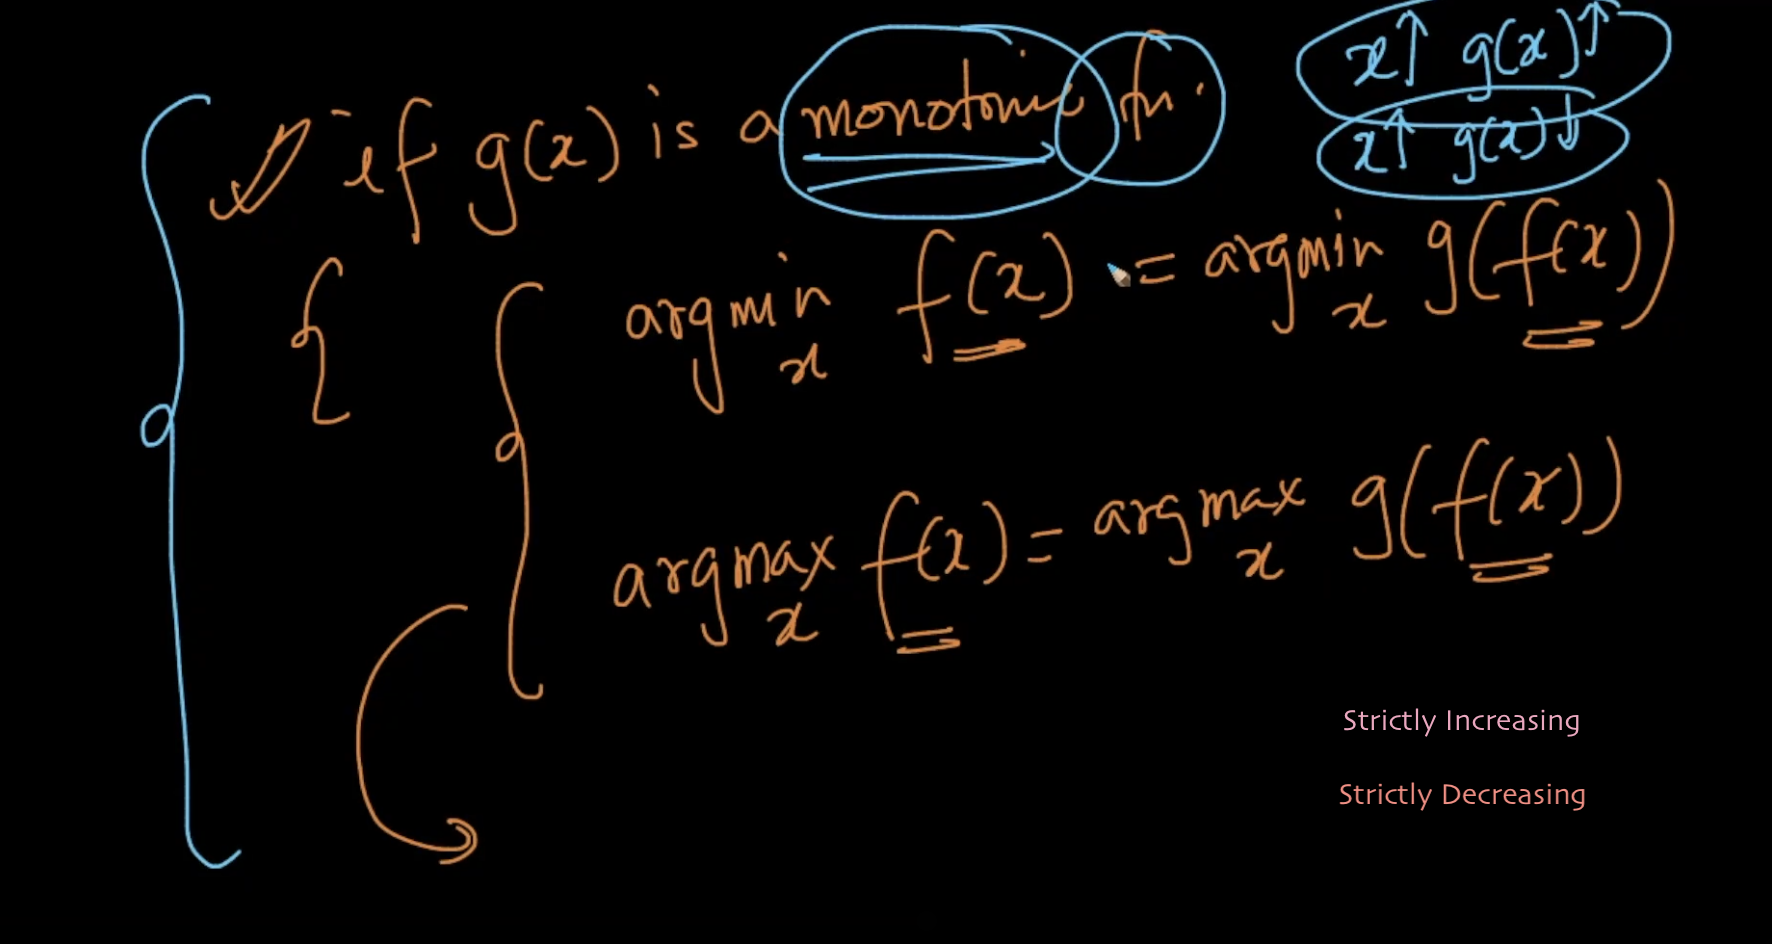 x↑ g(x)↑
if g(x) is a monotonic fn.
x↑ g(x)↓
argmin f(x) = argmin g(f(x))
x x
argmax f(x) = argmax g(f(x))
x x
Strictly Increasing
Strictly Decreasing